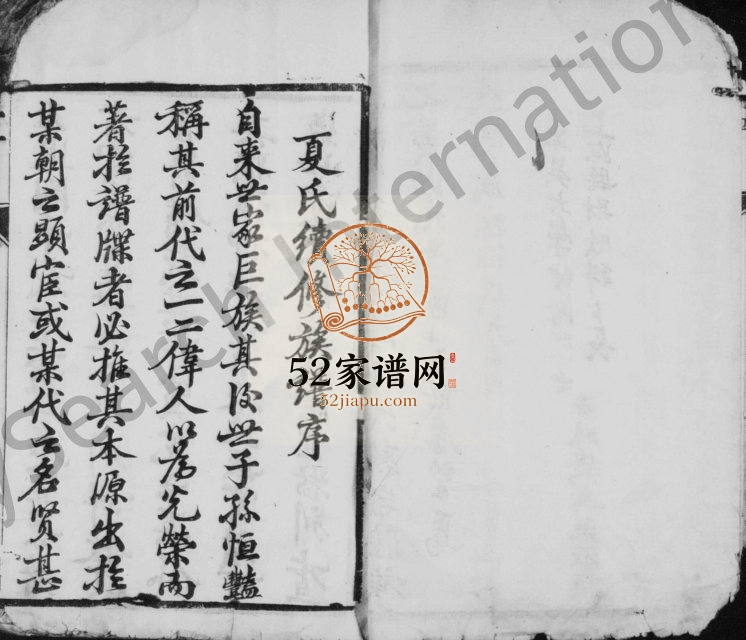 夏氏續修族譜序
自来世家巨族其後世子孫恒豔
稱其前代之一二偉人以為光榮而
著於譜牒者必推其本源出於
某朝之顯宦或某代之名賢甚
52家谱网
52jiapu.com
Search International